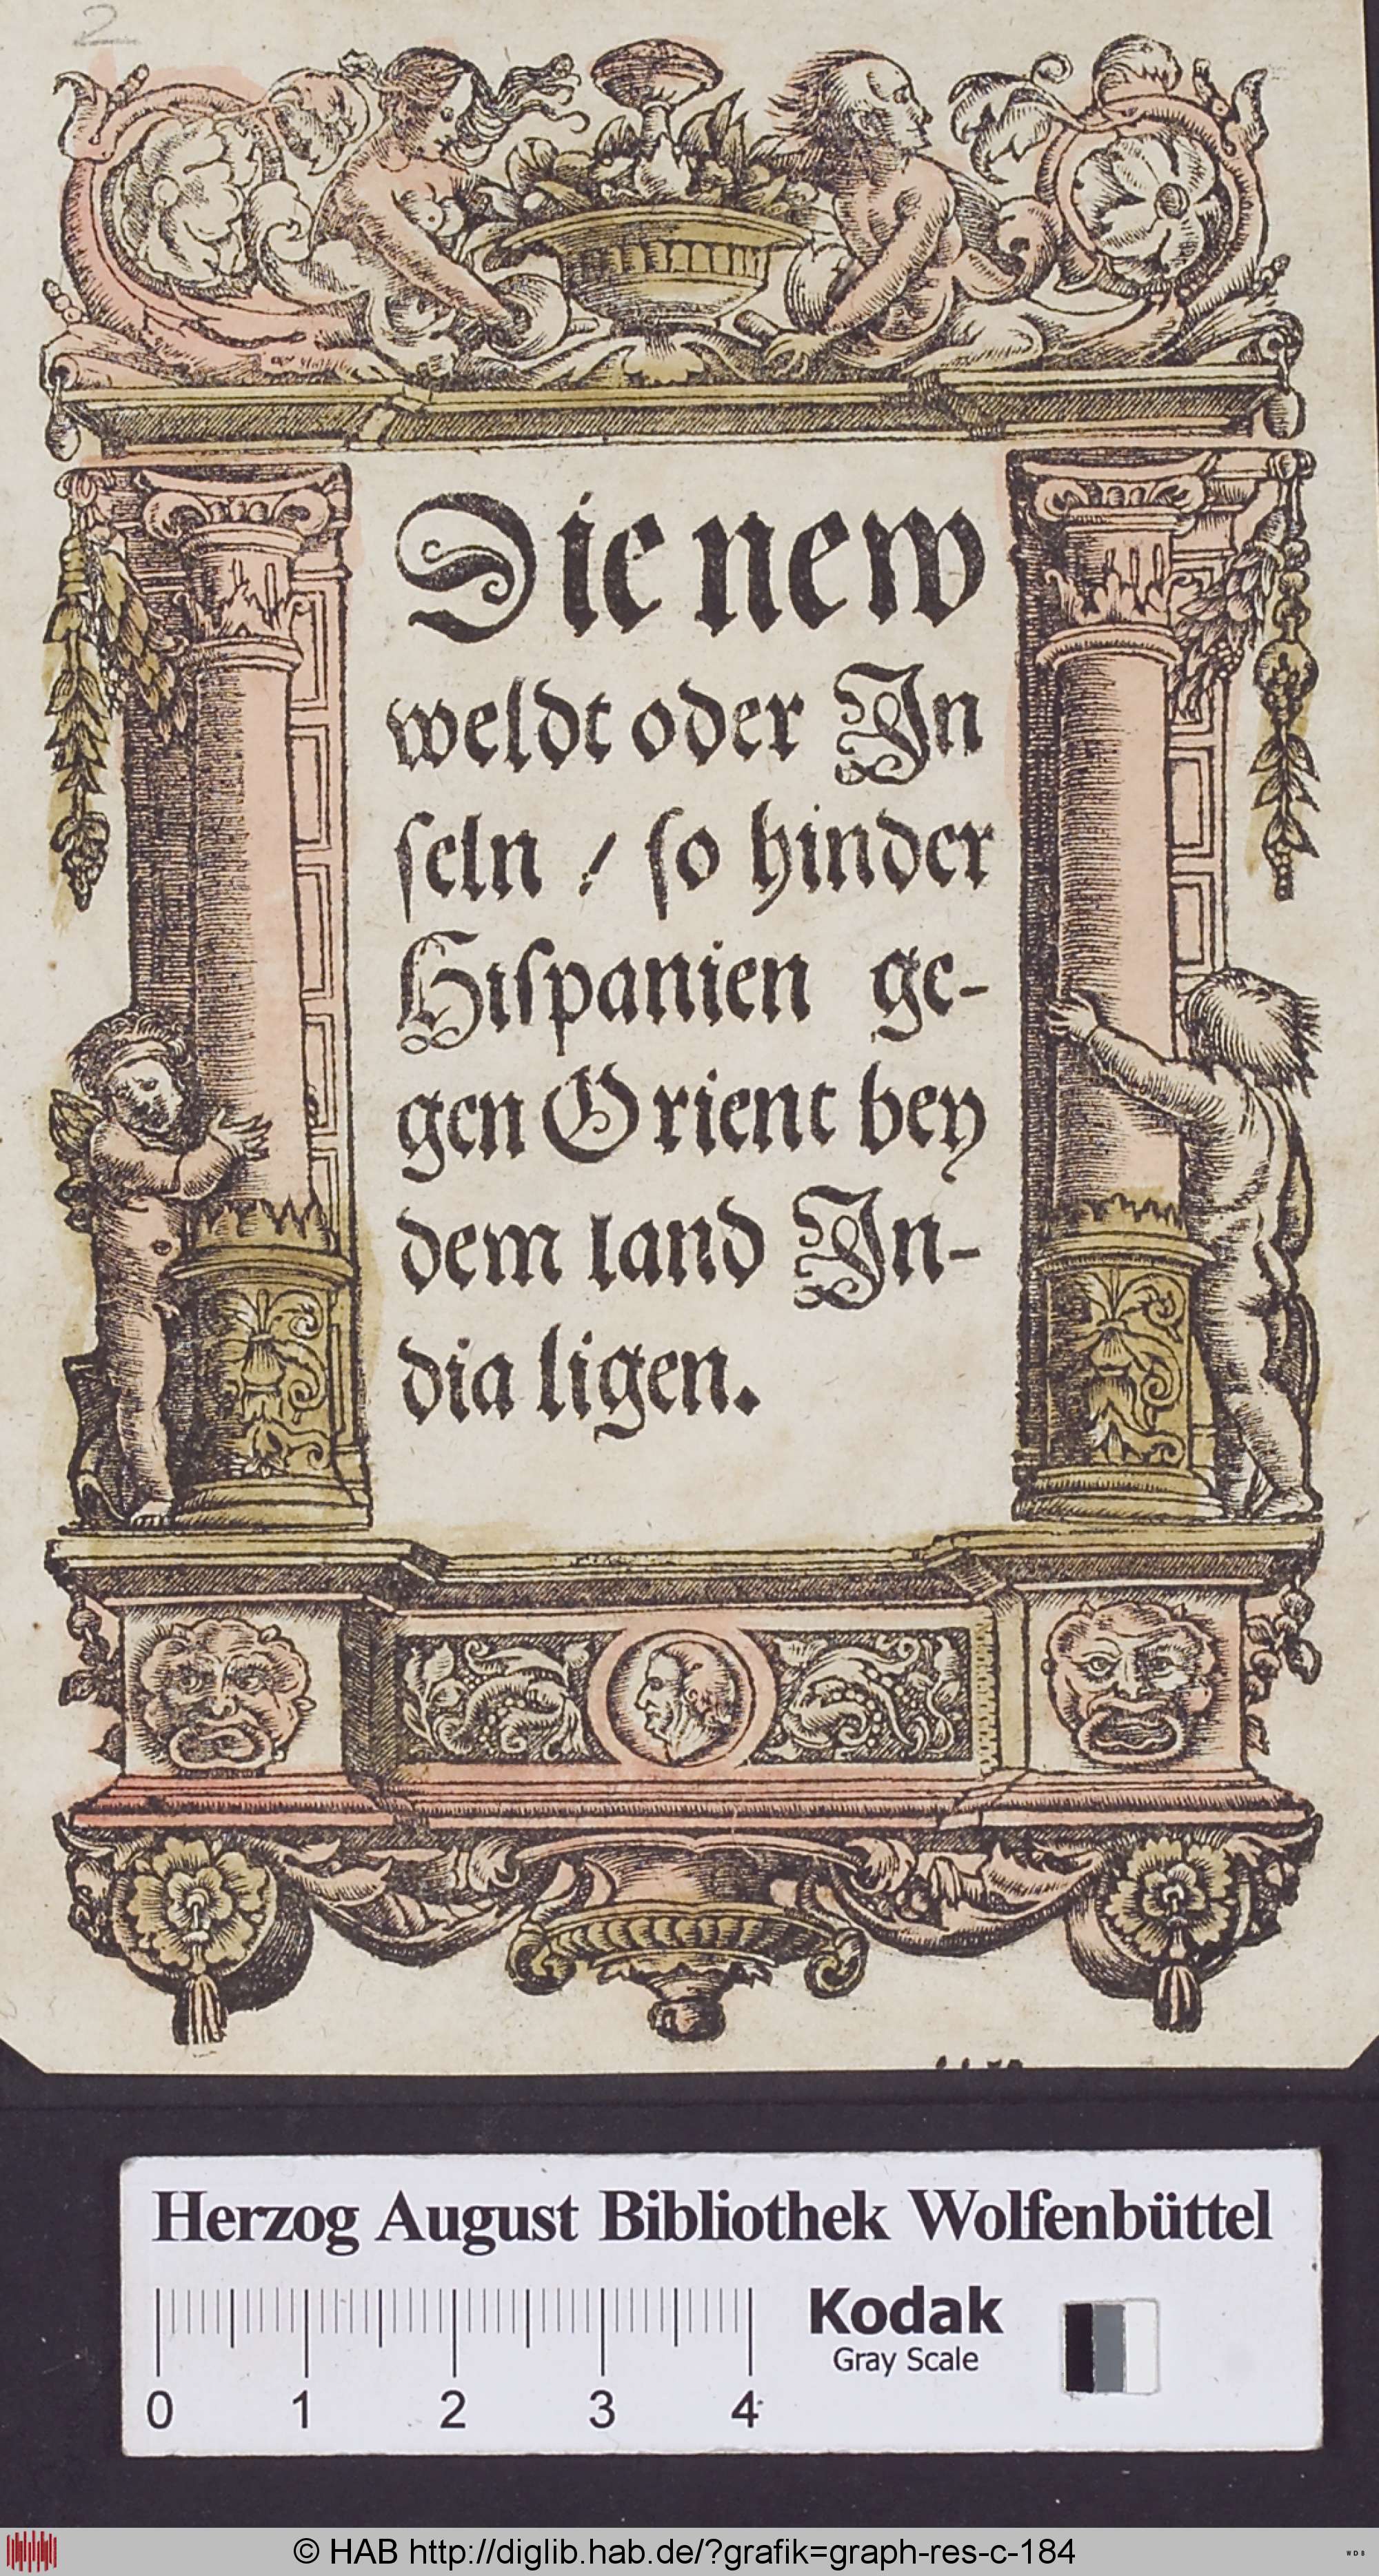 2
Die new
weldt oder In
seln / so hinder
Hispanien ge-
gen Orient bey
dem land In-
dia ligen.
Herzog August Bibliothek Wolfenbüttel
Kodak
Gray Scale
0 1 2 3 4
© HAB http://diglib.hab.de/?grafik=graph-res-c-184